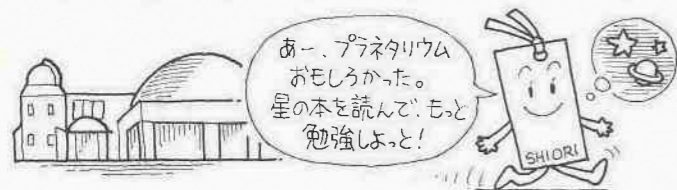 あー、プラネタリウム
おもしろかった。
星の本を読んで、もっと
勉強しよっと！
SHIORI